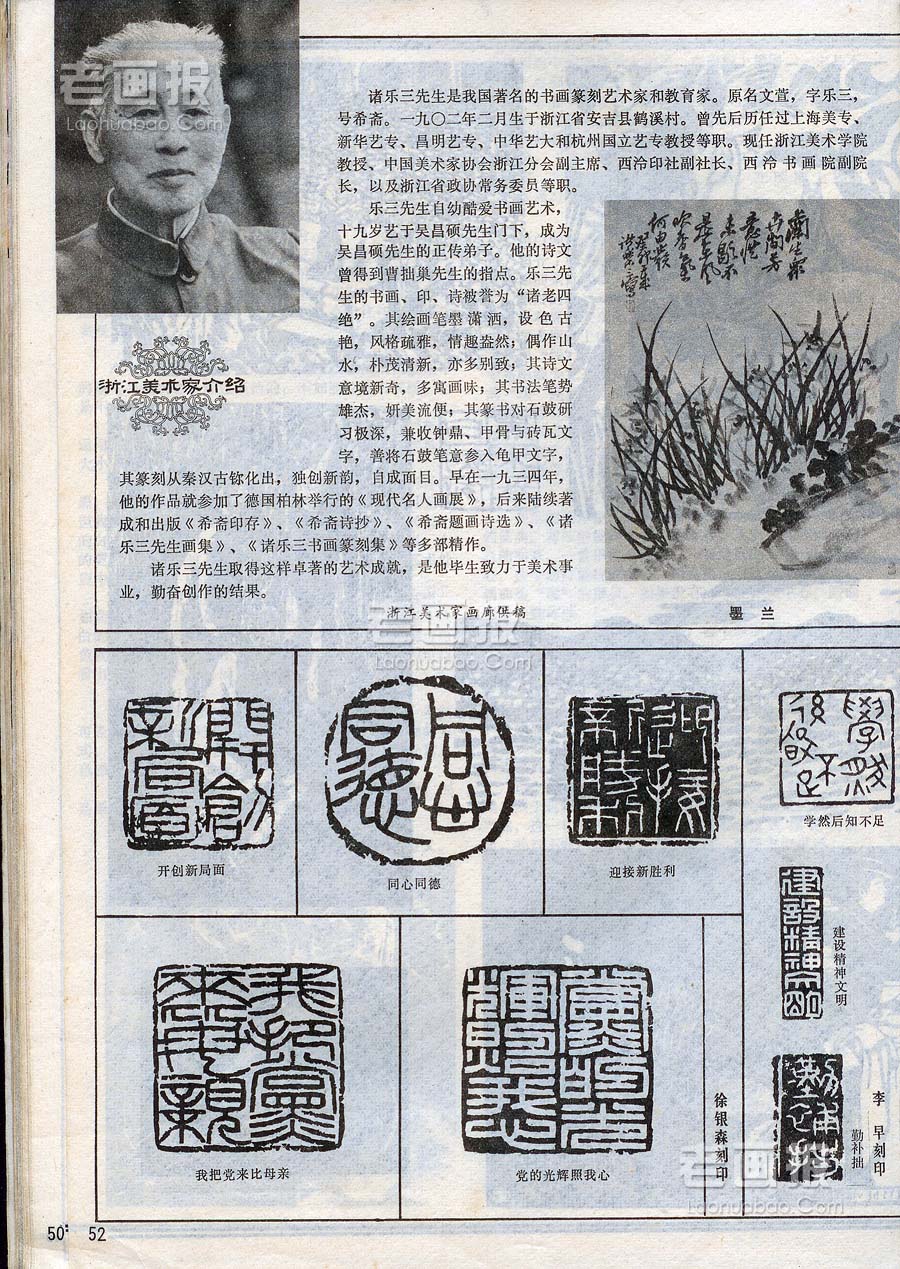 老画报
诸乐三先生是我国著名的书画篆刻艺术家和教育家。原名文萱，字乐三，
号希斋。一九〇二年二月生于浙江省安吉县鹤溪村。曾先后历任过上海美专、
新华艺专、昌明艺专、中华艺大和杭州国立艺专教授等职。现任浙江美术学院
教授、中国美术家协会浙江分会副主席、西泠印社副社长、西泠书画院副院
长，以及浙江省政协常务委员等职。
乐三先生自幼酷爱书画艺术，
十九岁艺于吴昌硕先生门下，成为
吴昌硕先生的正传弟子。他的诗文
曾得到曹拙巢先生的指点。乐三先
生的书画、印、诗被誉为“诸老四
绝”。其绘画笔墨潇洒，设色古
艳，风格疏雅，情趣盎然；偶作山
水，朴茂清新，亦多别致；其诗文
意境新奇，多寓画味；其书法笔势
雄杰，妍美流便；其篆书对石鼓研
习极深，兼收钟鼎、甲骨与砖瓦文
字，善将石鼓笔意参入龟甲文字，
其篆刻从秦汉古钦化出，独创新韵，自成面目。早在一九三四年，
他的作品就参加了德国柏林举行的《现代名人画展》，后来陆续著
成和出版《希斋印存》、《希斋诗抄》、《希斋题画诗选》、《诸
乐三先生画集》、《诸乐三书画篆刻集》等多部精作。
诸乐三先生取得这样卓著的艺术成就，是他毕生致力于美术事
业，勤奋创作的结果。
浙江美术家画廊供稿
浙江美术家介绍
墨兰
老画报
Laohuabao.Com
开创新局面
同心同德
迎接新胜利
学然后知不足
建设精神文明
我把党来比母亲
党的光辉照我心
徐银森刻印
勤补拙
李早刻印
老画报
Laohuabao.Com
50 52